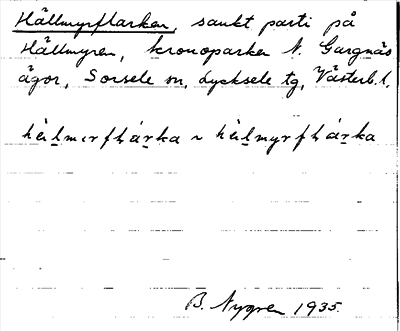 Hällmyrflarken, sankt parti på
Hällmyren, kronoparken N. Gargnäs
ägor, Sorsele sn, Lycksele tg, Västerb. l.
hèlmırfłárka ~ hèlmyrfłárka
B. Nygren 1935.